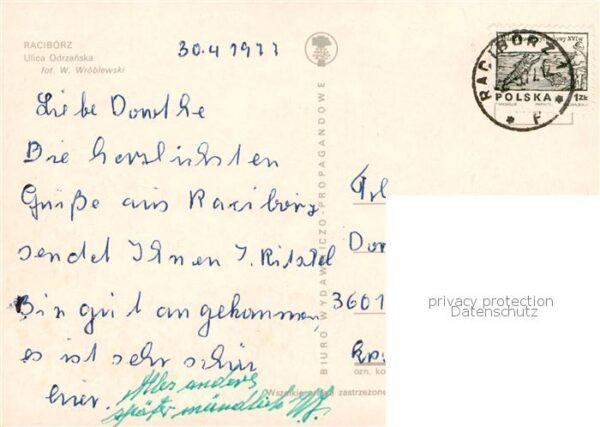 RACIBÓRZ
Ulica Odrzańska
fot. W. Wróblewski
30.4 1977
Liebe Dorothe
Die herzlichsten
Grüße aus Racibórz
sendet Ihnen J.
Bin gut angekommen,
es ist sehr schön
hier.
Alles andere
später mündlich
BIURO WYDAWNICZO-PROPAGANDOWE
Frl
Dor
3601
Kr
ozn. ko
zastrzeżone
RACIBÓRZ 1
XVI w
POLSKA
1 Zł
privacy protection
Datenschutz